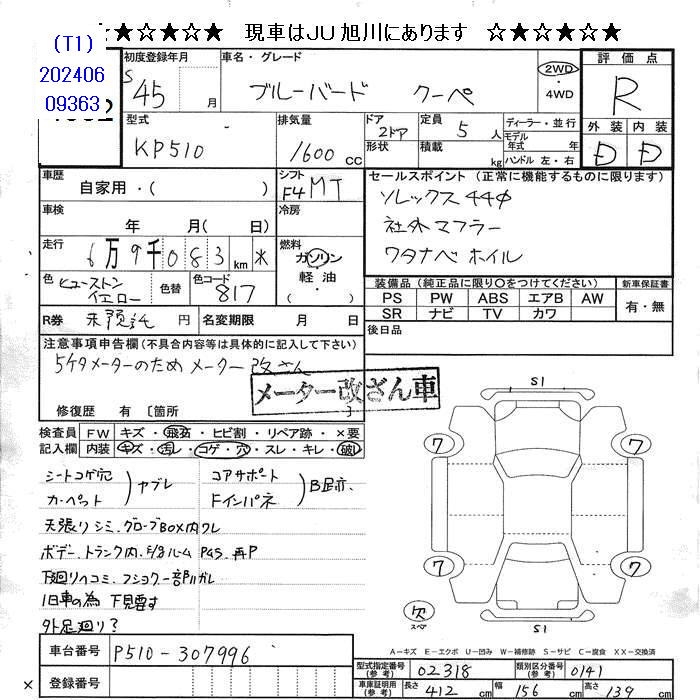 ★☆★☆★☆ 現車はJU旭川にあります ☆★☆★☆★
(T1)
202406
09363
初度登録年月 S 45 月
車名・グレード ブルーバード クーペ
2WD・4WD
評価点 R
型式 KP510
排気量 1600 cc
ドア形状 2ドア
定員 5人
積載 kg
ディーラー・並行
モデル年式 年式
ハンドル 左・右
外装 D 内装 D
車歴 自家用・( )
シフト F4 MT
車検 年 月( 日)
冷房
セールスポイント (正常に機能するものに限ります)
ソレックス 44φ
社外マフラー
ワタナベホイル
走行 6万9千083km ※
燃料 ガソリン・軽油
色 ヒューストンイエロー 色替
色コード 817
装備品(純正品に限り〇をつけてください)
PS PW ABS エアB AW
SR ナビ TV カワ
新車保証書 有・無
R券 未預託 円 名変期限 月 日
後日品
注意事項申告欄(不具合内容等は具体的に記入して下さい)
5ケタメーターのためメーター改ざん
メーター改ざん車
修復歴 有 〔箇所
検査員記入欄
FW キズ・飛石・ヒビ割・リペア跡・×要
内装 キズ・汚レ・コゲ・穴・スレ・キレ・破レ
シートコゲ穴 カーペット ヤブレ
コアサポート Fインパネ
天張りシミ、グローブBOX内ワレ
ボデー、トランク内、
下廻りヘコミ、
旧車の為 下見要す
外足廻り?
S1
7 7
7 7
欠 スペア
S1
A−キズ E−エクボ U−凹み W−補修跡 S−サビ C−腐食 XX−交換済
車台番号 P510-307996
登録番号
×
型式指定番号(参考) 02318 類別区分番号(参考) 0141
車庫証明用(参考) 長さ 412 cm 幅 156 cm 高さ 139 cm